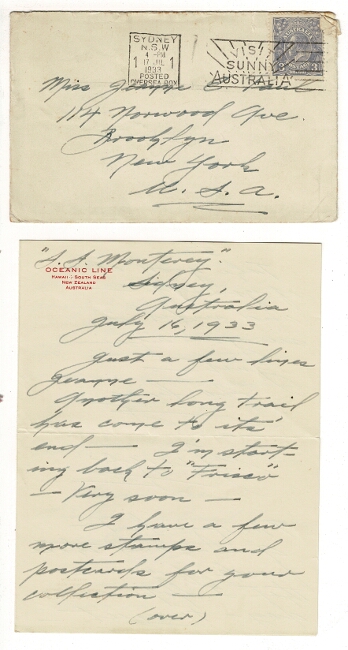 SYDNEY
N.S.W
4 - PM
17 JUL
1933
1 1
POSTED
OVERSEA BOX
VISIT
SUNNY
AUSTRALIA
AUSTRALIA
3
Miss Jeanne
114 Norwood Ave.
Brooklyn
New York
U. S. A.
"S. S. Monterey."
OCEANIC LINE
HAWAII · SOUTH SEAS
NEW ZEALAND
AUSTRALIA
Sydney,
Australia
July 16, 1933
Just a few lines
Jeanne —
Another long trail
has come to its'
end — I'm start-
ing back to "Frisco"
— Very soon —
I have a few
more stamps and
postcards for your
collection —
(over)